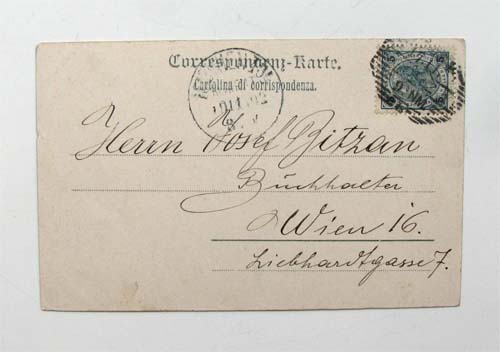 Correspondenz-Karte.
Cartolina di corrispondenza.
Herrn Josef Bitzan
Buchhalter
Wien 16.
Liebhardtgasse 7.